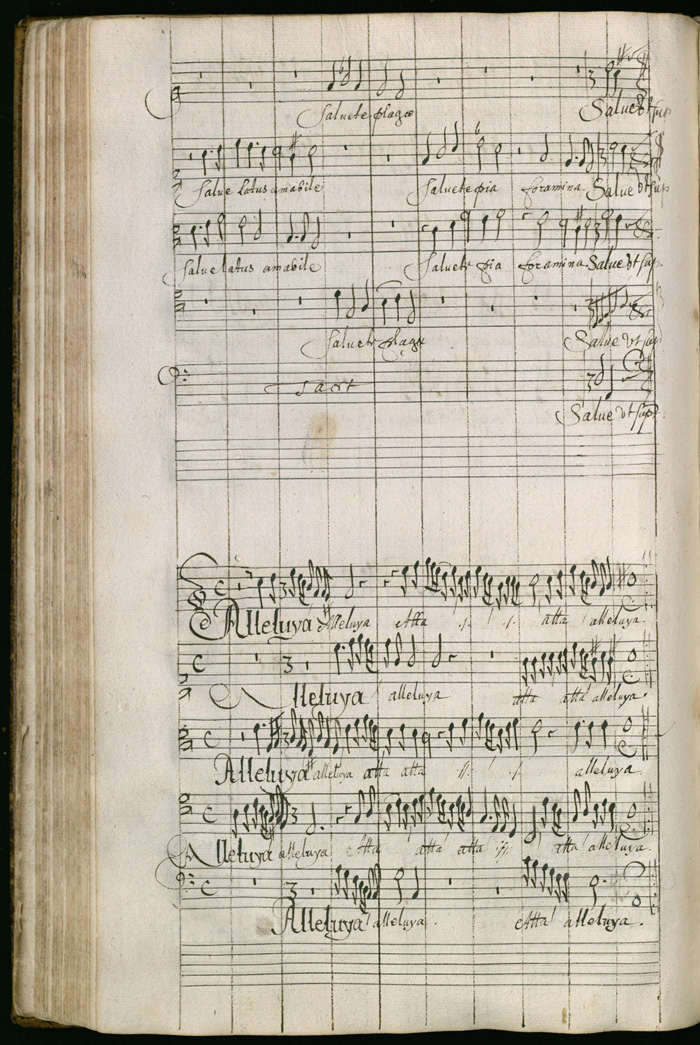 Saluete plagæ Salue vt sup
Salue latus amabile Saluete pia foramina Salue vt sup
Salue latus amabile Saluete pia foramina Salue vt sup.
Saluete plagæ Salue vt sup
tacet
Salue vt supª
Alleluya Alleluya atta .//. .//. atta alleluya.
Alleluya alleluya atta atta alleluya.
Alleluya alleluya atta atta .//. .//. alleluya.
Alleluya alleluya atta atta atta .//. atta alleluya.
Alleluya alleluya. atta alleluya.